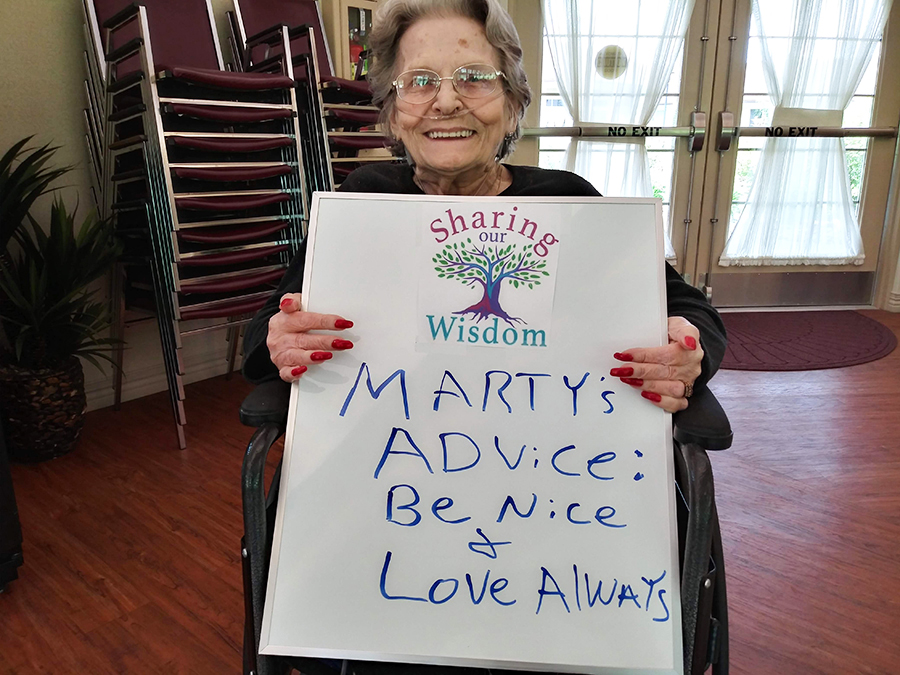 NO EXIT
NO EXIT
Sharing
our
Wisdom
MARTY'S
ADVICE:
Be Nice
&
Love Always